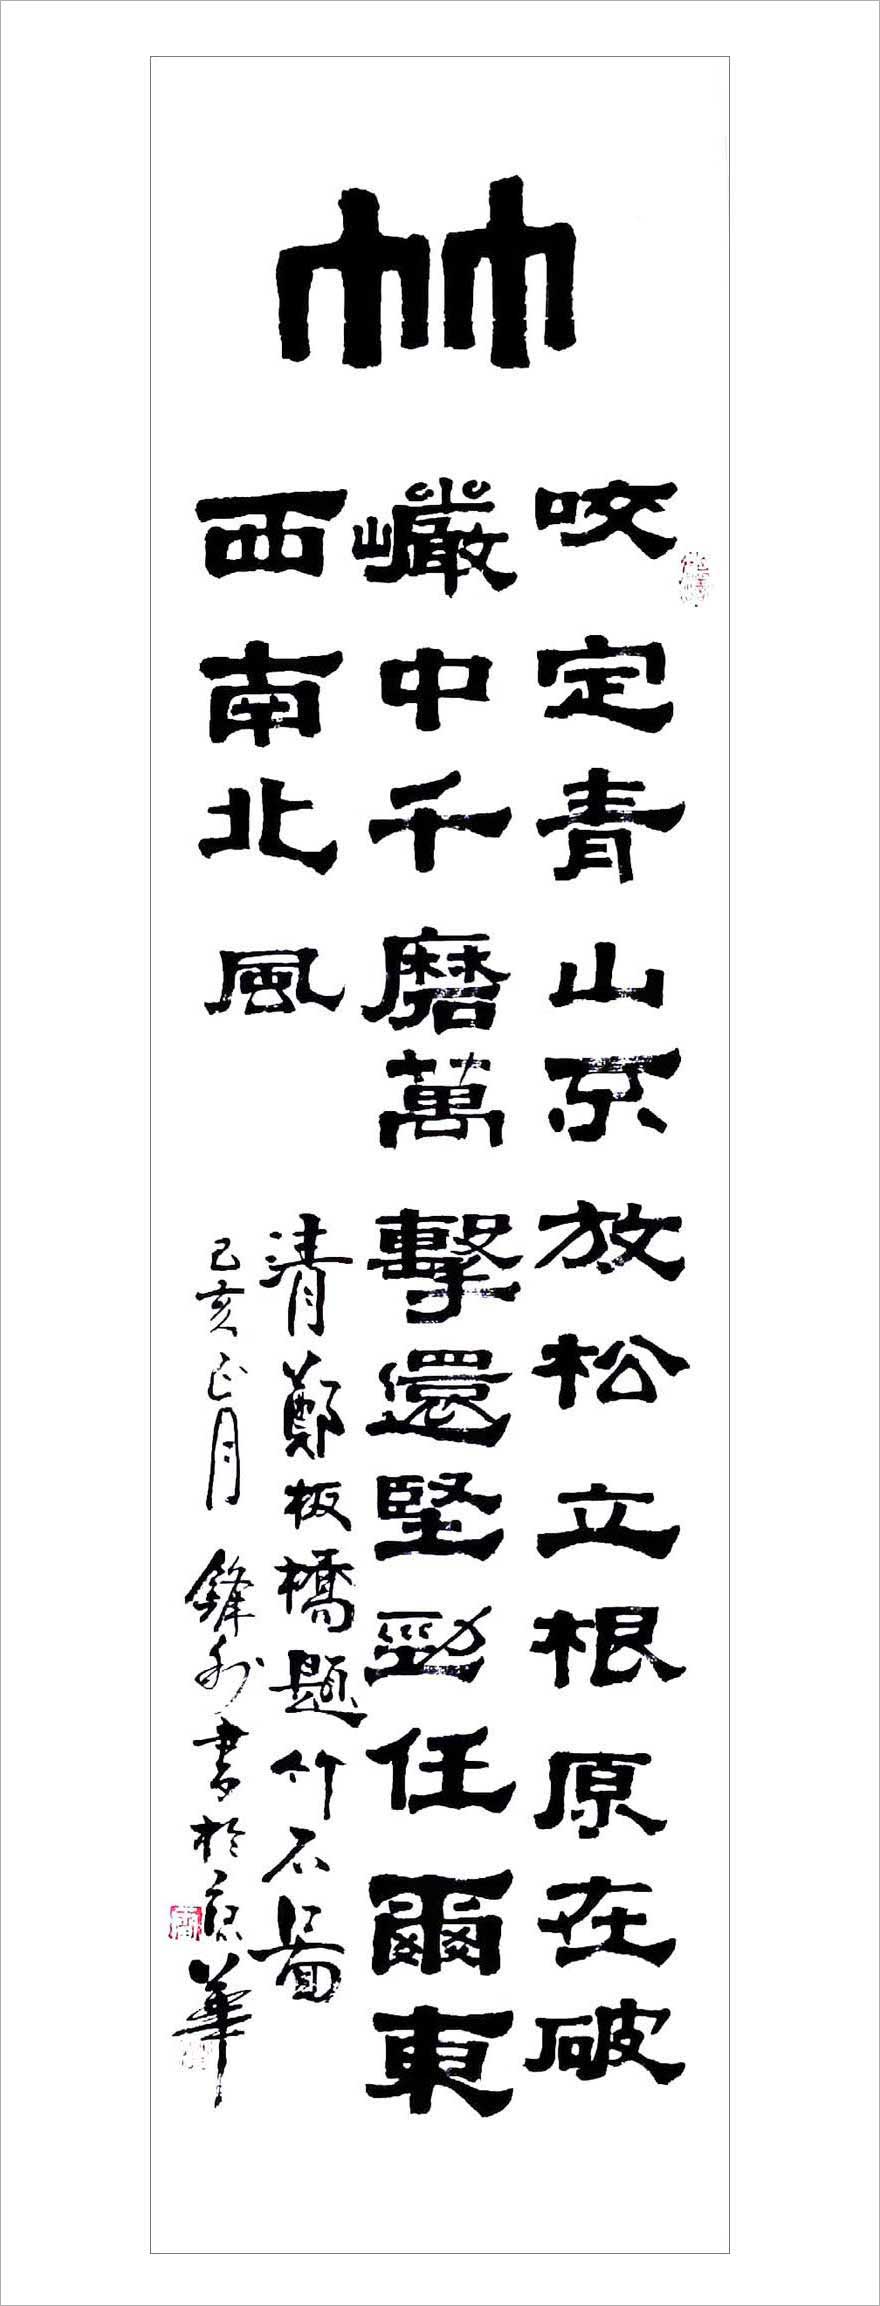 竹
咬定青山不放松立根原在破
巖中千磨萬擊還堅勁任爾東
西南北風
清鄭板橋題竹石圖
己亥正月鋒利書於京華